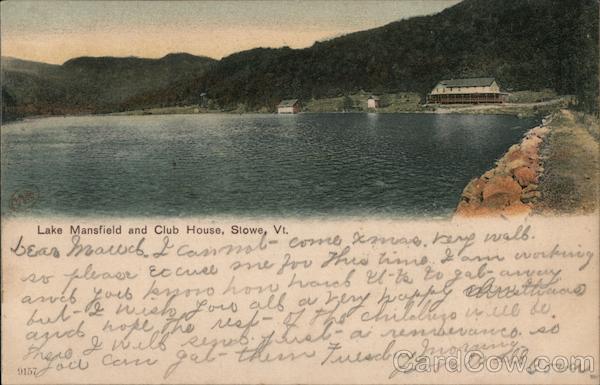 Lake Mansfield and Club House, Stowe, Vt.
Dear Maud. I cannot come Xmas. very well.
so please Excuse me for this time. I am working
and you know how hard it is to get away
but I wish you all a very happy Christmas
and hope the rest of the childrgs will be
there I will send just a remverance. so
you can get them Tuesday morning
9157
CardCow.com